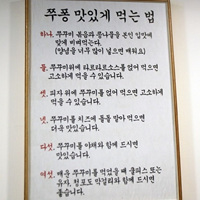 쭈퐁 맛있게 먹는 법
하나, 쭈꾸미 볶음과 콩나물을 본인 입맛에
맞게 비벼먹는다.
(양념을 너무 많이 넣으면 매워요)
둘, 쭈꾸미위에 타르타르소스를 얹어 먹으면
고소하게 먹을 수 있습니다.
셋, 피자 위에 쭈꾸미를 얹어 먹으면
고소하게 먹을 수 있습니다.
넷, 쭈꾸미를 치즈에 돌돌 말아 먹으면
더욱 맛있습니다.
다섯, 쭈꾸미를 야채와 함께 드시면
맛있습니다.
여섯, 매운 쭈꾸미를 먹었을 땐 쿨피스 또는
유자, 청포도 막걸리와 함께 드시면
좋습니다.